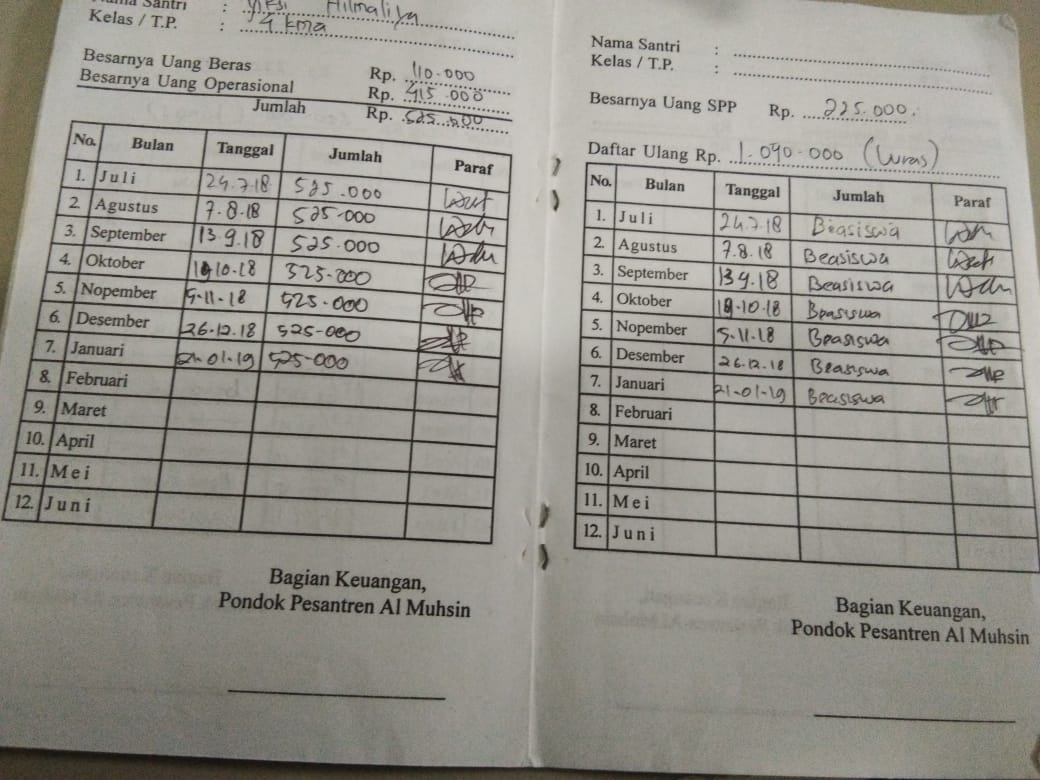 Nama Santri : Hilmaliya
Kelas / T.P. : 4 kma
Besarnya Uang Beras Rp. 110.000
Besarnya Uang Operasional Rp. 415.000
Jumlah Rp. 525.000
No. Bulan Tanggal Jumlah Paraf
1. Juli 24.7.18 525.000
2. Agustus 7.8.18 525.000
3. September 13.9.18 525.000
4. Oktober 10.18 525-000
5. Nopember 5-11-18 525-000
6. Desember 26.12.18 525-000
7. Januari 21-01-19 525-000
8. Februari
9. Maret
10. April
11. Mei
12. Juni
Bagian Keuangan,
Pondok Pesantren Al Muhsin
Nama Santri :
Kelas / T.P. :
Besarnya Uang SPP Rp. 225.000.
Daftar Ulang Rp. 1.090-000 (Lunas)
No. Bulan Tanggal Jumlah Paraf
1. Juli 24.7.18 Beasiswa
2. Agustus 7.8.18 Beasiswa
3. September 13.9.18 Beasiswa
4. Oktober 10.18 Beasiswa
5. Nopember 5-11.18 Beasiswa
6. Desember 26.12.18 Beasiswa
7. Januari 21-01-19 Beasiswa
8. Februari
9. Maret
10. April
11. Mei
12. Juni
Bagian Keuangan,
Pondok Pesantren Al Muhsin